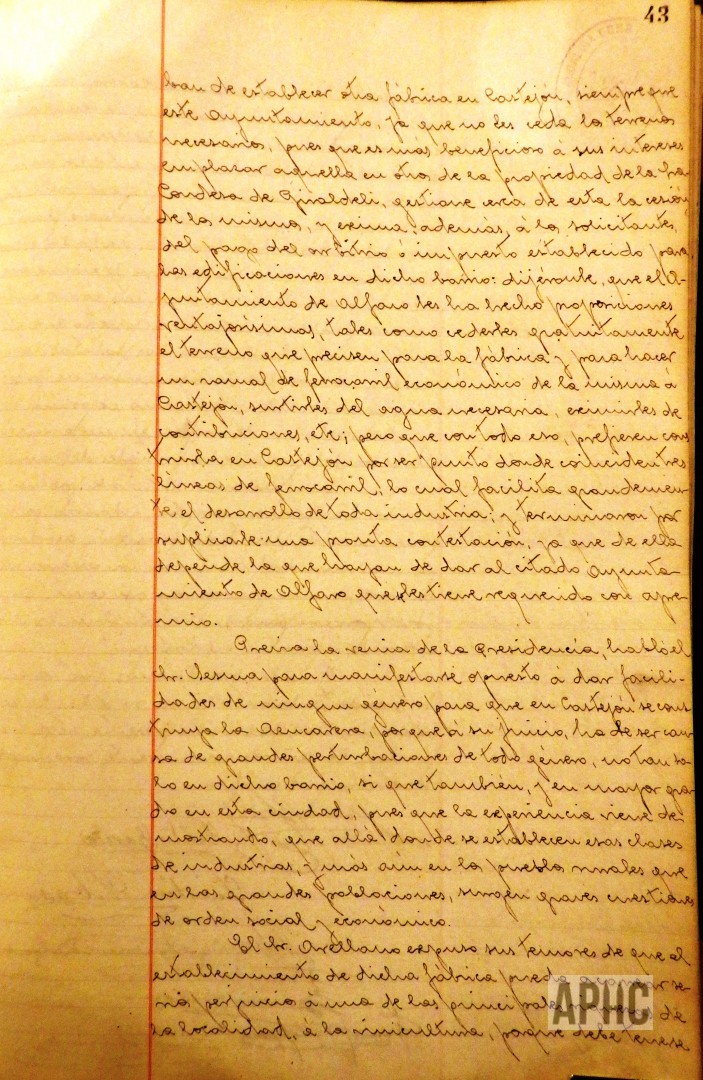 43
bran de establecer otra fábrica en Castejón, siempre que
este Ayuntamiento, ya que no les ceda los terrenos
necesarios, pues que es más beneficioso á sus intereses
emplazar aquella en otros de la propiedad de la Sra
Condesa de Giraldeli, gestione cerca de esta la cesión
de los mismos, y exima además, á los solicitantes,
del pago del arbitrio ó impuesto establecido para
las edificaciones en dicho barrio: dijéronle, que el A-
yuntamiento de Alfaro les ha hecho proposiciones
ventajosísimas, tales como cederles gratuitamente
el terreno que precisen para la fábrica y para hacer
un ramal de ferrocarril económico de la misma á
Castejón, surtirles del agua necesaria, eximirles de
contribuciones, etc; pero que con todo eso, prefieren cons
truirla en Castejón por ser punto donde coinciden tres
líneas de ferrocarril, lo cual facilita grandemen-
te el desarrollo de toda industria; y terminaron por
suplicarle una pronta contestación, ya que de ella
depende la que hayan de dar al citado Ayunta-
miento de Alfaro que les tiene requerido con apre-
mio.
Previa la venia de la Presidencia, habló el
Sr. Lesma para manifestarse opuesto á dar facili-
dades de ningun género para que en Castejón se cons
truya la Azucarera, porque á su juicio, ha de ser cau
sa de grandes perturbaciones de todo género, no tan so-
lo en dicho barrio, si que también, y en mayor gra
do en esta ciudad, pues que la experiencia viene de-
mostrando, que allá donde se establecen esas clases
de industrias, y más aún en los pueblos rurales que
en las grandes poblaciones, surgen graves cuestiones
de orden social y económico.
El Sr. Arellano expuso sus temores de que el
establecimiento de dicha fábrica pueda ocasionar se-
rios perjuicios á una de las principales riquezas de
la localidad, á la vinicultura, porque debe tenerse
APHC